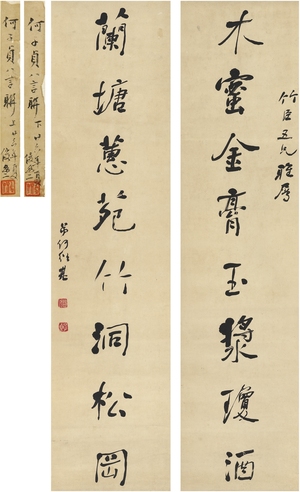 木蜜金膏玉漿瓊酒
竹臣五兄雅屬
蘭塘蕙苑竹洞松岡
弟何紹基
何子貞八言聯上
何子貞八言聯下